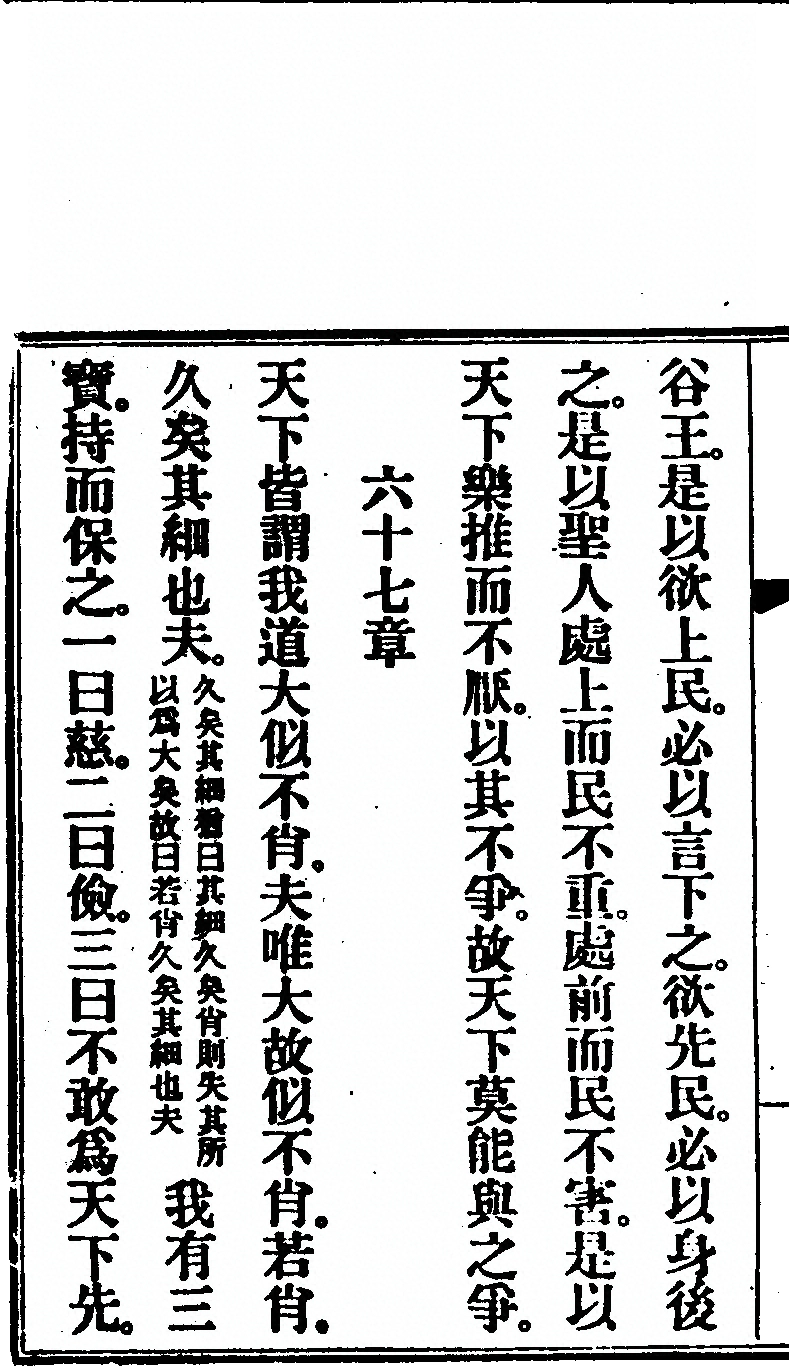 谷王。是以欲上民。必以言下之。欲先民。必以身後
之。是以聖人處上而民不重。處前而民不害。是以
天下樂推而不厭。以其不爭。故天下莫能與之爭。
六十七章
天下皆謂我道大似不肖。夫唯大故似不肖。若肖。
久矣其細也夫。久矣其細猶曰其細久矣肖則失其所以爲大矣故曰若肖久矣其細也夫我有三
寶。持而保之。一曰慈。二曰儉。三曰不敢爲天下先。